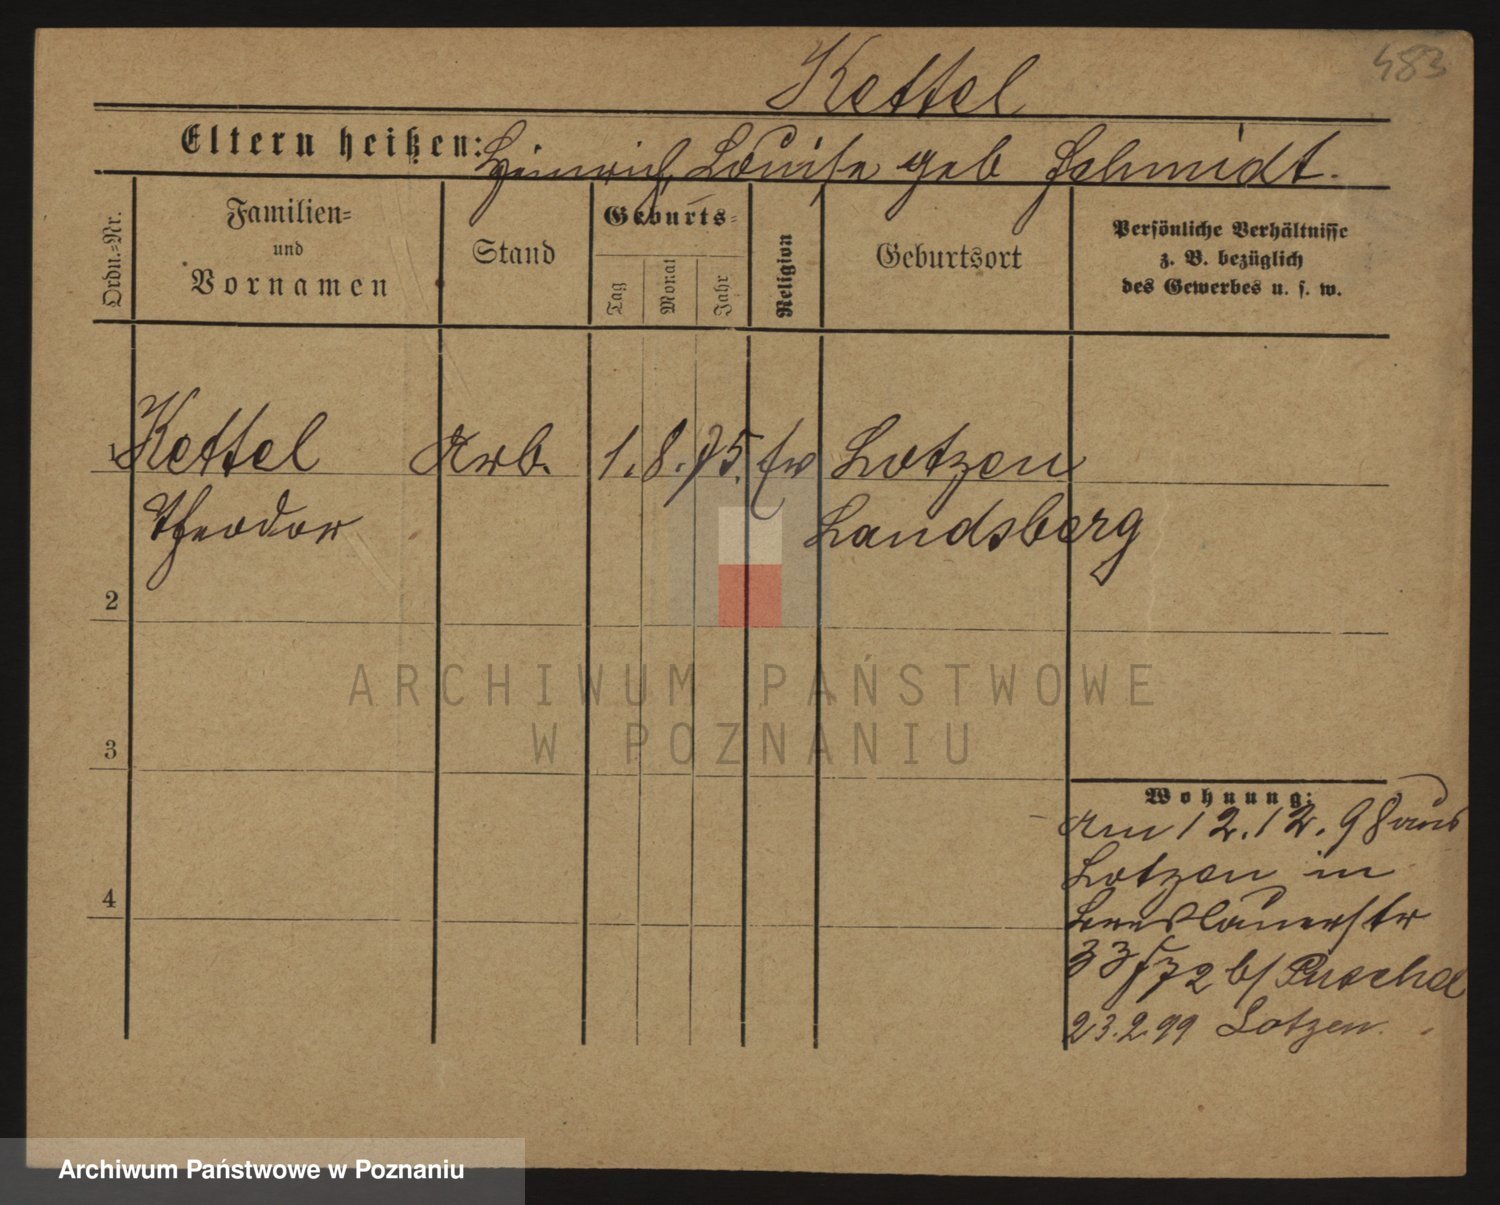 483
Kettel
Eltern heißen: Heinrich, Louise geb Schmidt.
Ordn.=Nr.
Familien=
und
Vornamen
Stand
Geburts=
Tag
Monat
Jahr
Religion
Geburtsort
Persönliche Verhältnisse
z. B. bezüglich
des Gewerbes u. s. w.
1 Kettel Arb. 1. 8. 75. ev Lotzen
Theodor Landsberg
2
3
4
Wohnung:
Am 12.12.98 aus
Lotzen in
Breslauerstr
33/72 b/
23.2.99 Lotzen.
ARCHIWUM PAŃSTWOWE
W POZNANIU
Archiwum Państwowe w Poznaniu